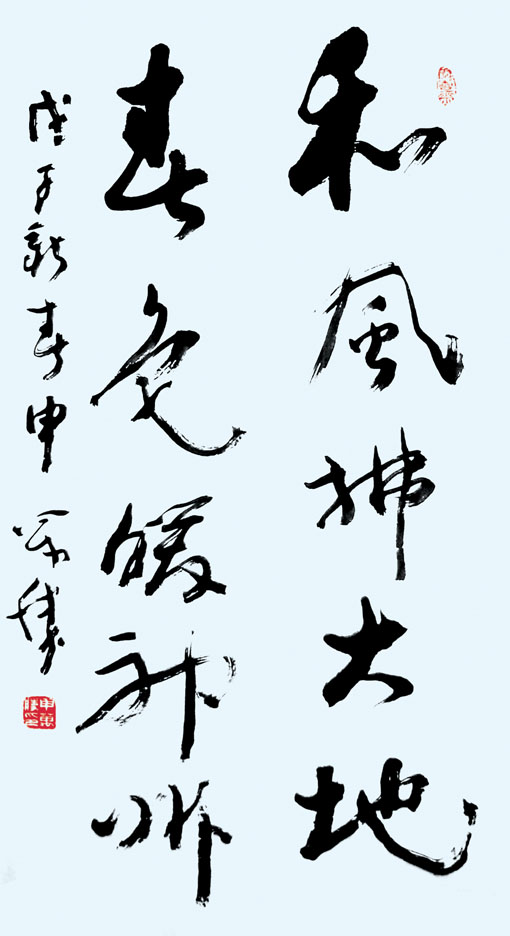 和風拂大地
春色暖神州
戊子新春申万胜